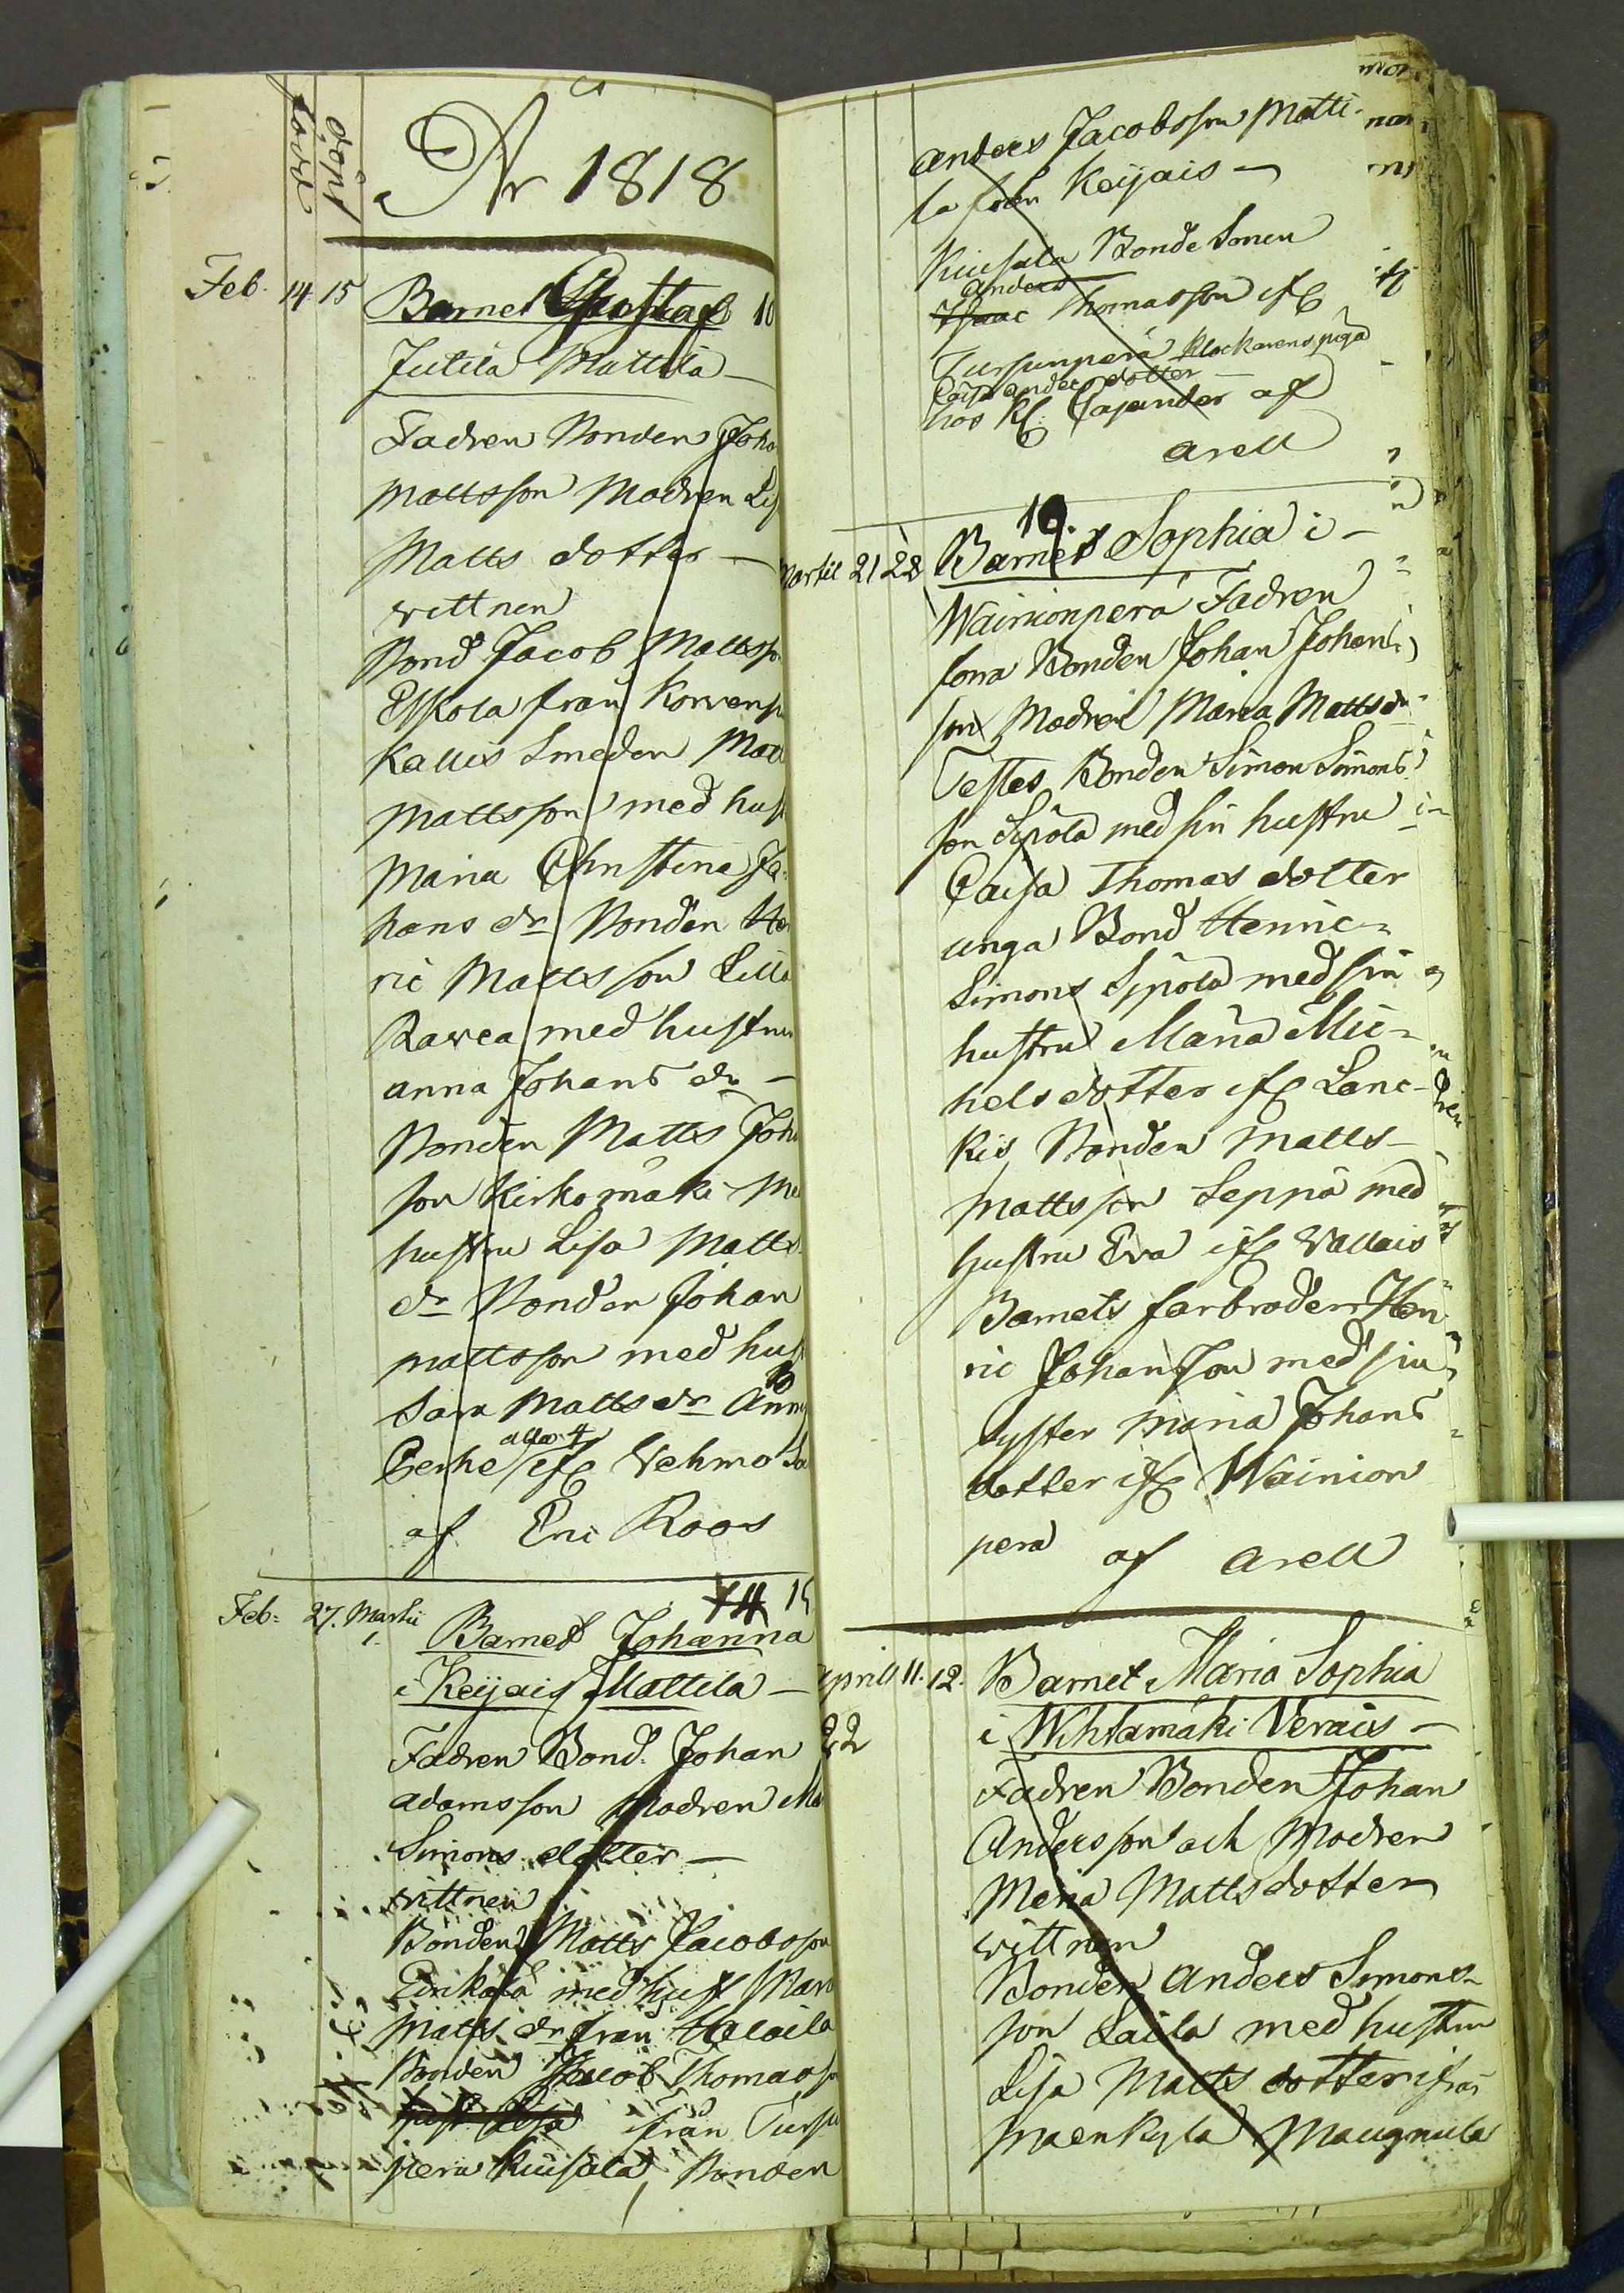 född döpt
År 1818
Feb. 14 15 Barnet Gustaf 10
Jutila Mattila —
Fadren Bonden Joha
Mattsson Modren Lis
Matts dotter —
wittnen
Bond Jacob Mattsso
Eskola från Korvenp
Kallis Smeden
Mattsson med hust
Maria Christina Jo
hans dr Bonden He
ric Mattsson Lilla
Rawea med hustru
anna Johans dr —
Bonden Matts Joha
son Kirkomäki me
hustru Lisa Matts
dr Bonden Johan
mattsson med hust
Sara Matts dr Anna
Gerhe ifr Vehmo
af Eric Roos
Feb: 27. Martii 1. 14 15
Barnet Johanna
i Keijais Mattila —
Fadren Bond. Johan
adamsson Modren Ma
Simons dotter —
wittnen
Bonden Matts Jacobsson
med hust Mar
Matts dr från
Bonden Jacob Thomasso
hust Lisa ifrån Tursu
pera Kuusala, Bonden
anders Jacobsson Matti
la från Keijais —
Kuusala Bonde Sonen
anders
Isaac Thomasson ifr
Tursunperä Klockarens piga
Caisa anders dotter —
hos Kl. Cajander af
arell
Martii 21 22 16.
Barnet Sophia i —
Wainionpera Fadren
Bonden Johan Johan
son Modren Maria Matts dr
Testes Bonden Simon Simons
son Sipola med sin hustru
Caisa Thomas dotter
unga Bond Henric
Simons Sipola med sin
hustru Maria Mic-
hels dotter ifr Lanc-
kis Bonden Matts —
Mattsson Seppä med
hustru Eva ifr Vallais
Barnets farbroder Hen
ric Johansson med sin
syster Maria Johans
dotter ifr Wainion
pera af arell
aprill 11. 12. Barnet Maria Sophia
22 i Wihtamäki Verais —
Fadren Bonden Johan
Andersson och Modren
Maria Matts dotter
wittnen
Bonden Anders Simons-
son Laila med hustru
Lisa Matts dotter ifrån
maenkyla Maugnula